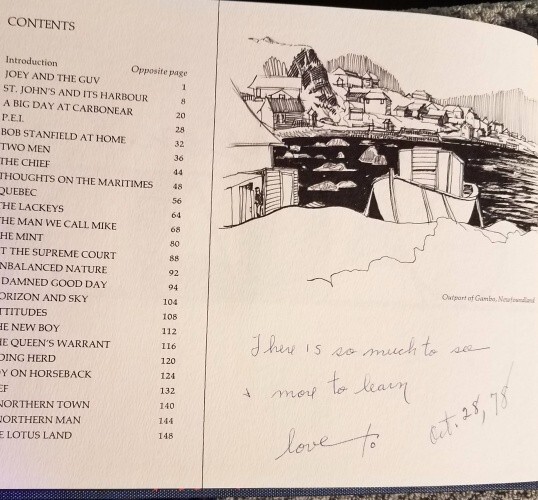 CONTENTS
Opposite page
Introduction
JOEY AND THE GUV 1
ST. JOHN'S AND ITS HARBOUR 8
A BIG DAY AT CARBONEAR 20
P.E.I. 28
BOB STANFIELD AT HOME 32
TWO MEN 36
THE CHIEF 44
THOUGHTS ON THE MARITIMES 48
QUEBEC 56
THE LACKEYS 64
HE MAN WE CALL MIKE 68
HE MINT 80
T THE SUPREME COURT 88
NBALANCED NATURE 92
DAMNED GOOD DAY 94
ORIZON AND SKY 104
TTITUDES 108
HE NEW BOY 112
HE QUEEN'S WARRANT 116
DING HERD 120
Y ON HORSEBACK 124
EF 132
NORTHERN TOWN 140
NORTHERN MAN 144
E LOTUS LAND 148
Outport of Gambo, Newfoundland
There is so much to see
+ more to learn
love
Oct. 28, 78